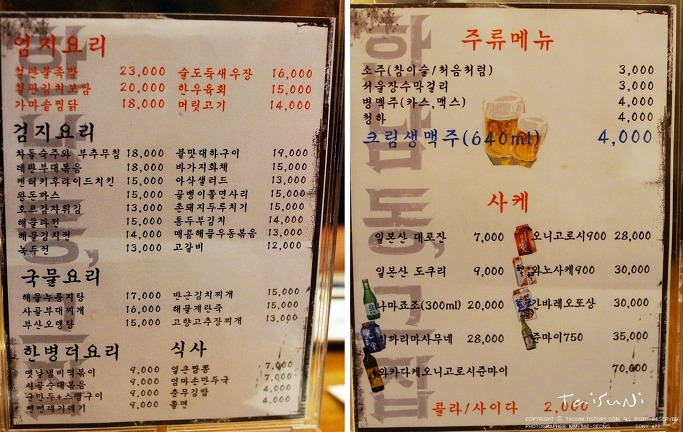 엄지요리
철판불족발 23,000 술도둑새우장 16,000
철판김치보쌈 20,000 한우육회 15,000
가마솥찜닭 18,000 머릿고기 14,000
검지요리
차돌숙주와 부추무침 18,000 불맛대하구이 19,000
데판부대볶음 18,000 바가지화채 15,000
켄터키후라이드치킨 15,000 아삭샐러드 13,000
왕돈까스 15,000 골뱅이쫄면사리 15,000
호프감자튀김 13,000 촌돼지두루치기 15,000
해물파전 15,000 통두부김치 14,000
해물김치전 14,000 매콤해물우동볶음 13,000
녹두전 13,000 고갈비 12,000
국물요리
해물누룽지탕 17,000 반근김치찌개 15,000
사골부대찌개 16,000 해물계란죽 15,000
부산오뎅탕 15,000 고향고추장찌개 13,000
한병더요리 식사
옛날냄비떡볶이 9,000 얼큰짬뽕 7,000
시골순대볶음 9,000 엄마손만두국 7,000
군만두+스팸구이 9,000 충무김밥 4,000
9,000 쫄면
하남동,고집
주류메뉴
소주(참이슬/처음처럼) 3,000
서울장수막걸리 3,000
병맥주(카스,맥스) 4,000
청하 4,000
크림생맥주(640ml) 4,000
사케
일본산 대포잔 7,000 오니고로시900 28,000
일본산 도쿠리 9,000 와노사케900 30,000
나마죠조(300ml) 20,000 간바레오또상 30,000
히까리마사무네 28,000 준마이750 35,000
와카다케오니고로시준마이 70,000
콜라/사이다 2,000
TaiSuNi
COPYRIGHT © TAISUNI.TISTORY.COM ALL RIGHT RESERVED
PHOTOGRAPHER KIM TAE-SEONG SONY α77